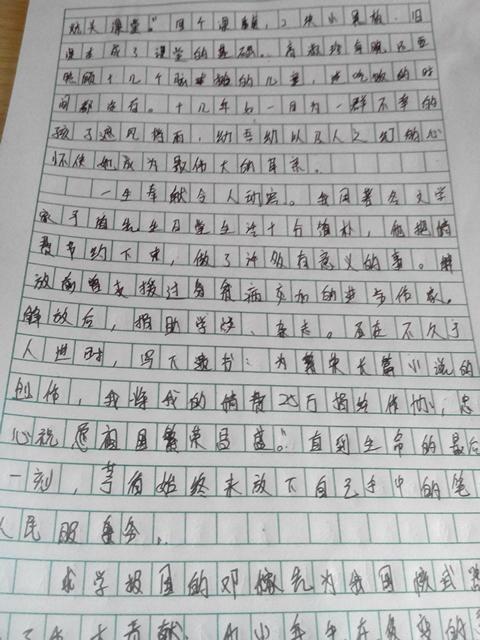 航天课堂”。四个课题,2块小黑板,旧
课本成了课堂的基础。高教师每晚还要
照顾十几个脑瘫的儿童,连吃饭的时
间都没有。十几年如一日为一群不幸的
孩子遮风挡雨,幼吾幼以及人之幼的心
怀使她成为最伟大的母亲。
一生奉献令人动容。我国著名文学
家茅盾先生及其生活十分简朴,他把稿
费节约下来,做了许多有意义的事。解
放前曾支援过身贫病交加的进步作家。
解放后,捐助学校、杂志。不久于
人世时,写下遗书:为繁荣长篇小说的
创作,我将我的稿费25万捐给作协,忠
心祝愿祖国繁荣昌盛。”直到生命的最后
一刻,茅盾始终未放下自己手中的笔
人民服务。
求学报国的邓稼先为我国核武器